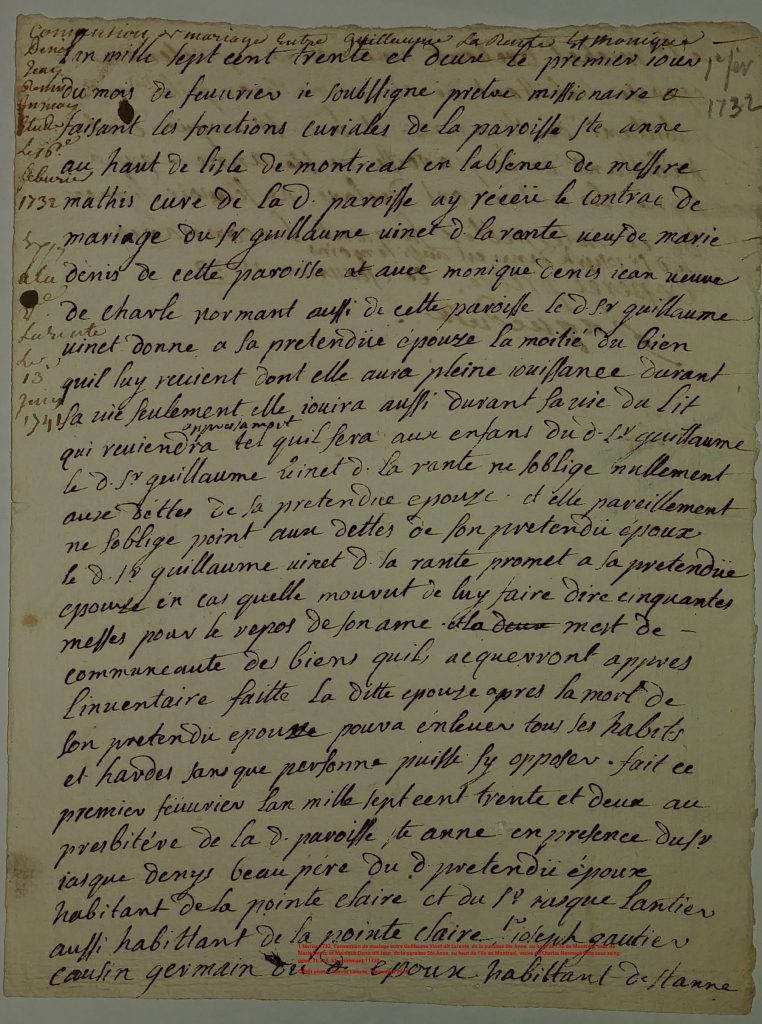 Convention de mariage Entre Guillaume La Rente Et monique
Denis
Jean
En may
Etude
Le 16e
feburier
1732
1er fév
1732
Lan mille sept cent trente et deux le premier iour
du mois de feuurier ie soubssigne pretre missionaire
faisant les fonctions curiales de la paroisse ste anne
au haut de lisle de montreal en labsence de messire
mathis cure de la d. paroisse ay récëü le contrac de
mariage du sr guillaume uinet d. la rante ueuf de marie
denis de cette paroisse et auec monique denis iean ueuue
de charle normant aussi de cette paroisse le d sr guillaume
uinet donne a sa pretendüe épouze la moitié du bien
quil luy reuient dont elle aura pleine iouissance durant
sa uie seulement elle iouira aussi durant sa uie du lit
qui reuiendra tel quil sera aux enfans du d. sr guillaume
le d. sr guillaume uinet d. la rante ne soblige nullement
aux dettes de sa pretendue epouze. et elle pareillement
ne soblige point aux dettes de son pretendü époux
le d. sr guillaume uinet d. la rante promet a sa pretendüe
epouze en cas quelle mourut de luy faire dire cinquantes
messes pour le repos de son ame. de
communeaute des biens quils acquerront appres
linuentaire faitte la ditte epouze apres la mort de
son pretendu epouze poura enleuer tous ses habits
et hardes sans que personne puisse sy opposer. fait ce
premier féuurier lan mille sept cent trente et deux au
presbitére de la d. paroisse ste anne en presence du sr
iasque denys beau pére du d. pretendü époux
habitant de la pointe claire et du sr iasque lantier
aussi habittant de la pointe claire sr ioseph gautier
cousin germain du d. epoux habittant de st anne
a La
Larente
Le
13
1741